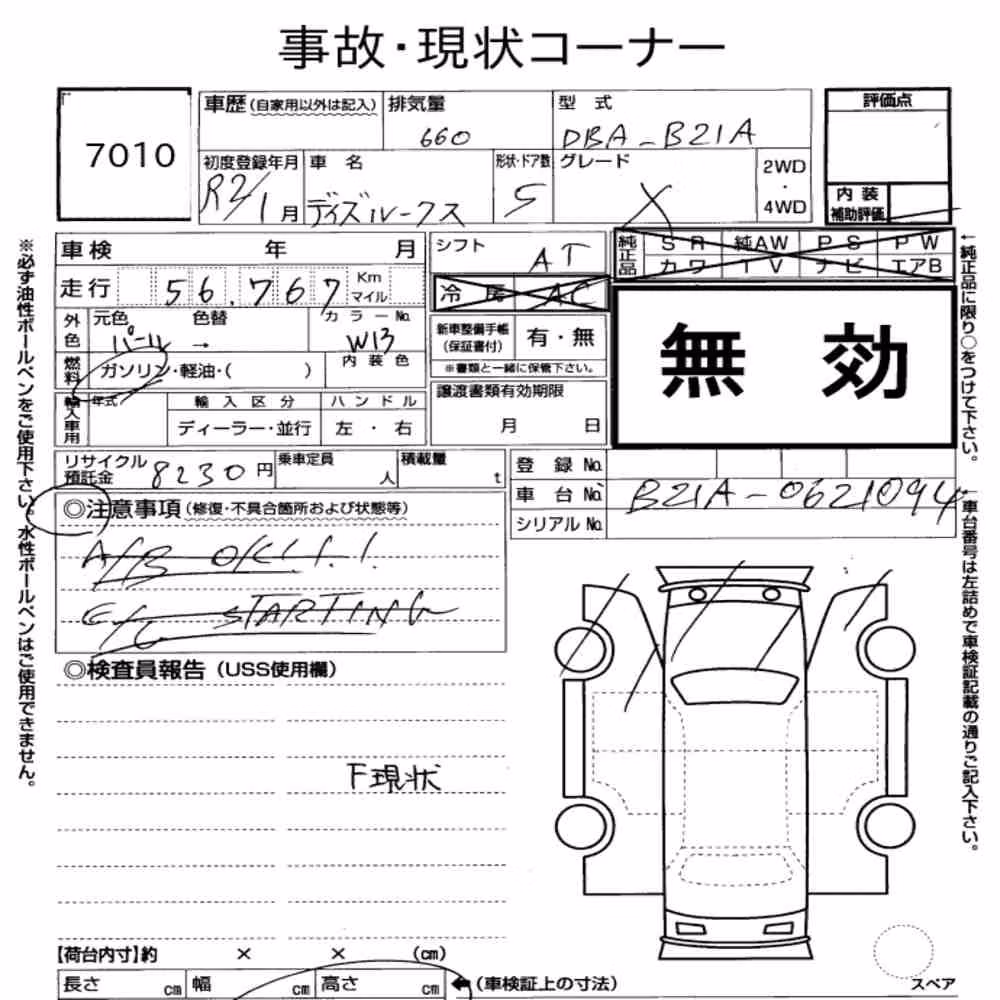 事故・現状コーナー
7010
車歴(自家用以外は記入) 排気量 660 型式 DBA-B21A
評価点
初度登録年月 R2/1月 車名 ディズルークス 形状・ドア数 5 グレード X 2WD・4WD
内装補助評価
車検 年 月
シフト AT
純正品 SR 純AW PS PW
カワ TV ナビ エアB
走行 56.767 Kmマイル
冷房 AC
外色 元色 パール 色替 → カラーNo. W13
新車整備手帳(保証書付) 有・無
※書類と一緒に保管下さい。
無効
燃料 ガソリン・軽油・( ) 内装色
譲渡書類有効期限
月 日
輸入車用 年式 輸入区分 ハンドル
ディーラー・並行 左・右
リサイクル預託金 8230円 乗車定員 人 積載量 t
登録No.
車台No. B21A-0621094
シリアルNo.
◎注意事項(修復・不具合箇所および状態等)
A/B OK!!!
E/G STARTING
◎検査員報告(USS使用欄)
下現状
【荷台内寸】約 × × (cm)
長さ cm 幅 cm 高さ cm ←(車検証上の寸法)
スペア
※必ず油性ボールペンをご使用下さい。水性ボールペンはご使用できません。
←純正品に限り○をつけて下さい。
←車台番号は左詰めで車検証記載の通りご記入下さい。